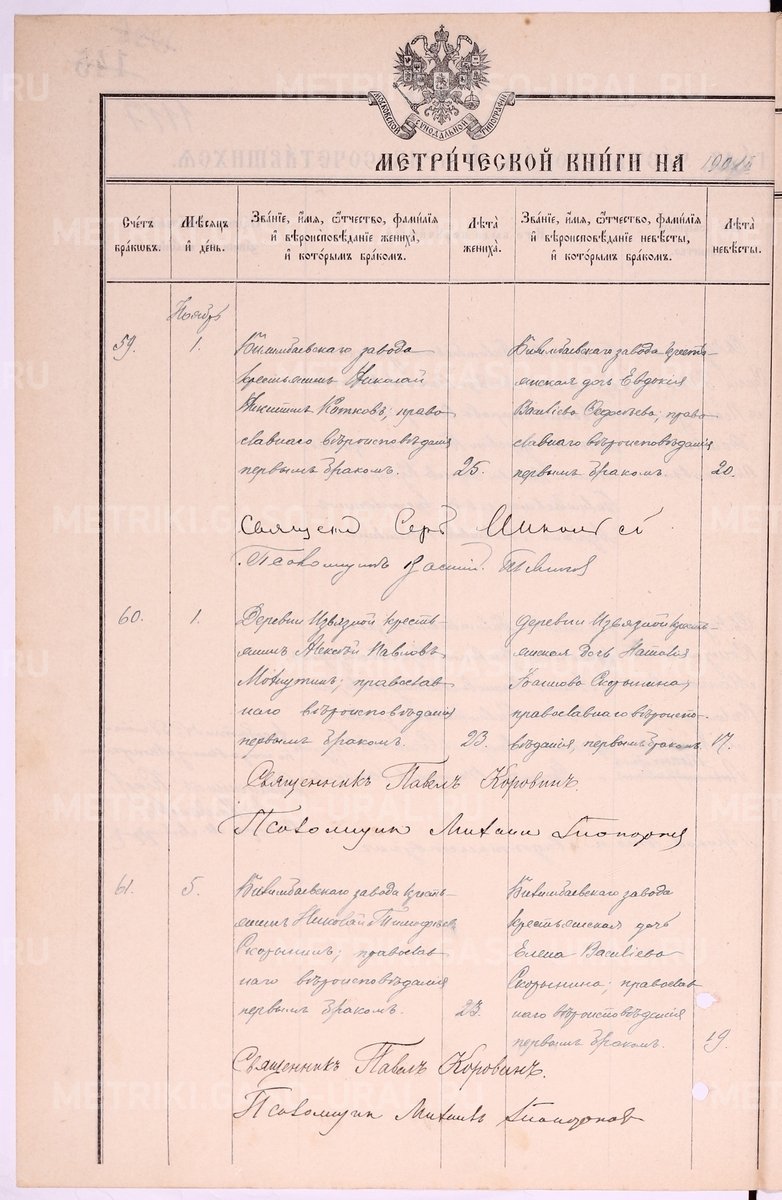 МОСКОВСКОЙ СѴНОДАЛЬНОЙ ТИПОГРАФІИ
МЕТРИ́ЧЕСКОЙ КНИ́ГИ НА
Сче́тъ бра́кѡвъ.
Мѣ́сѧцъ и҆ де́нь.
Зва́нїе, и҆́мѧ, ѻ҆́тчество, фамѝлїѧ и҆ вѣроисповѣ́данїе жениха̀, и҆ кото́рымъ бра́комъ.
Лѣ́та жениха̀.
Зва́нїе, и҆́мѧ, ѻ҆́тчество, фамѝлїѧ и҆ вѣроисповѣ́данїе невѣ́сты, и҆ кото́рымъ бра́комъ.
Лѣ́та невѣ́сты.
Ноябрь
59.
1.
Билимбаевскаго завода
крестьянинъ Николай
Никитинъ Котковъ; право
славнаго вѣроисповѣданія
первымъ бракомъ.
25.
Билимбаевскаго завода кресть-
янская дочь Евдокія
Васильева Федосѣева; право
славнаго вѣроисповѣданія
первымъ бракомъ.
20.
60.
1.
Деревни Извязной кресть-
янинъ Алексѣй Павловъ
православ
наго вѣроисповѣданія
первымъ бракомъ.
23.
Деревни Извязной кресть-
янская дочь
Скорынина;
православнаго вѣроиспо-
вѣданія, первымъ бракомъ.
17.
Священникъ Павелъ Коровинъ.
Псаломщик Михаил
61.
5.
Билимбаевскаго завода кресть-
янинъ Николай Тимофѣевъ
Скорынинъ; православ
наго вѣроисповѣданія
первымъ бракомъ.
23.
Билимбаевскаго завода
крестьянская дочь
Елена Васильева
Скорынина; православ
наго вѣроисповѣданія
первымъ бракомъ.
19.
Священникъ Павелъ Коровинъ.
Псаломщик Михаилъ